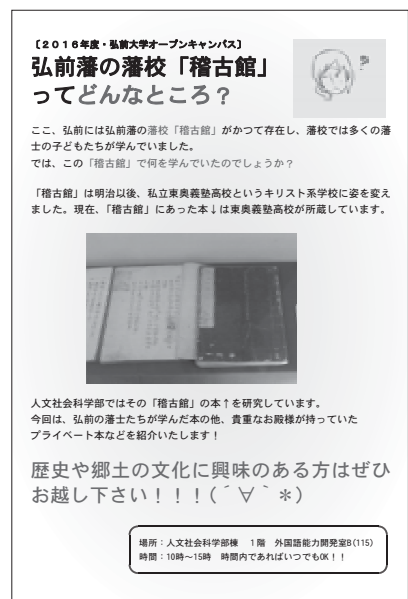 〔２０１６年度・弘前大学オープンキャンパス〕
弘前藩の藩校「稽古館」
ってどんなところ？
ここ、弘前には弘前藩の藩校「稽古館」がかつて存在し、藩校では多くの藩
士の子どもたちが学んでいました。
では、この「稽古館」で何を学んでいたのでしょうか？
「稽古館」は明治以後、私立東奥義塾高校というキリスト系学校に姿を変え
ました。現在、「稽古館」にあった本↓は東奥義塾高校が所蔵しています。
人文社会科学部ではその「稽古館」の本↑を研究しています。
今回は、弘前の藩士たちが学んだ本の他、貴重なお殿様が持っていた
プライベート本などを紹介いたします！
歴史や郷土の文化に興味のある方はぜひ
お越し下さい！！！(´∀｀*)
場所：人文社会科学部棟　１階　外国語能力開発室B(115)
時間：10時～15時　時間内であればいつでもOK！！